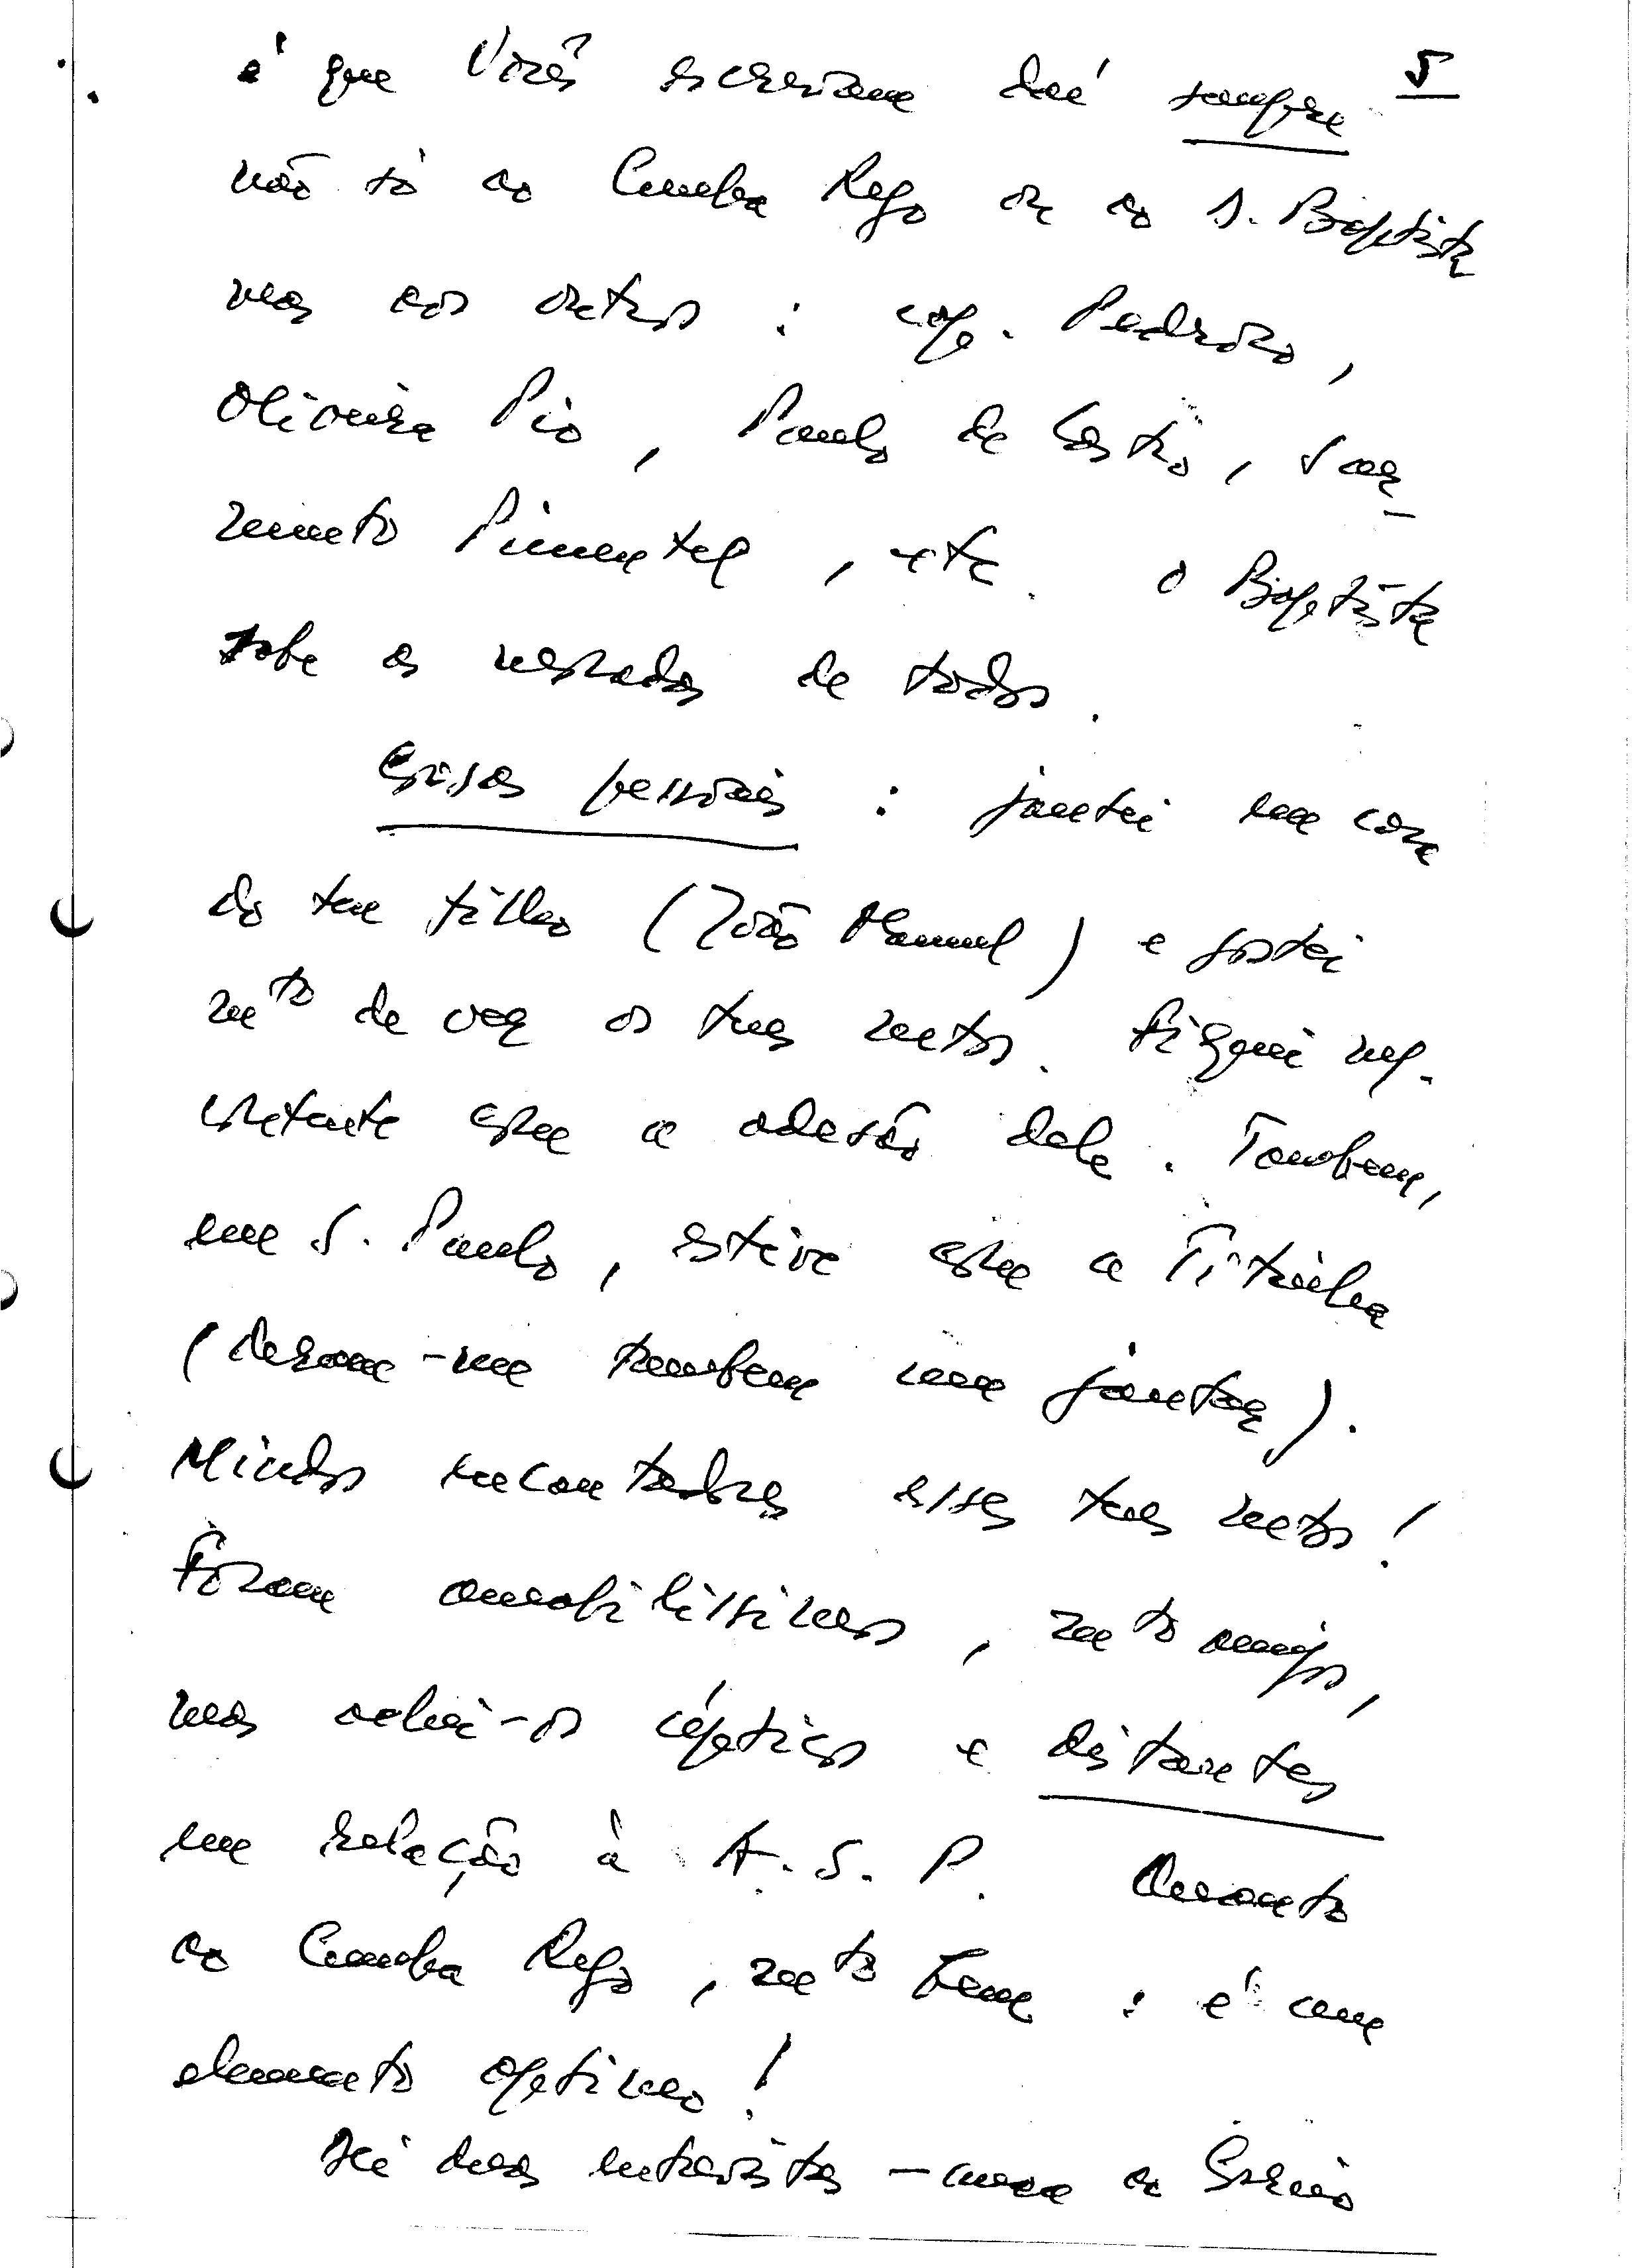 5
é que Vocês escrevam daí sempre
não só ao Cunha Rego ou ao S. Baptista
mas aos outros: cap. Pedroso,
Oliveira Pio, Paulo de Castro, Sar-
mento Pimentel, etc. O Baptista
sabe as moradas de todos.
Coisas pessoais: jantei em casa
do teu filho (João Manuel) e gostei
mto de ver os teus netos. Fiquei
contente com a adesão dele. Tambem,
em S. Paulo, estive com a Titinha
(deram-me tambem um jantar).
Miudos encantadores esses teus netos!
Foram amabilissimos, mto amigos,
mas achei-os cépticos e distantes
em relação à A. S. P. Quanto
ao Cunha Rego, mto bem: é um
elemento optimo!
Dei duas entrevistas - uma ao Correio